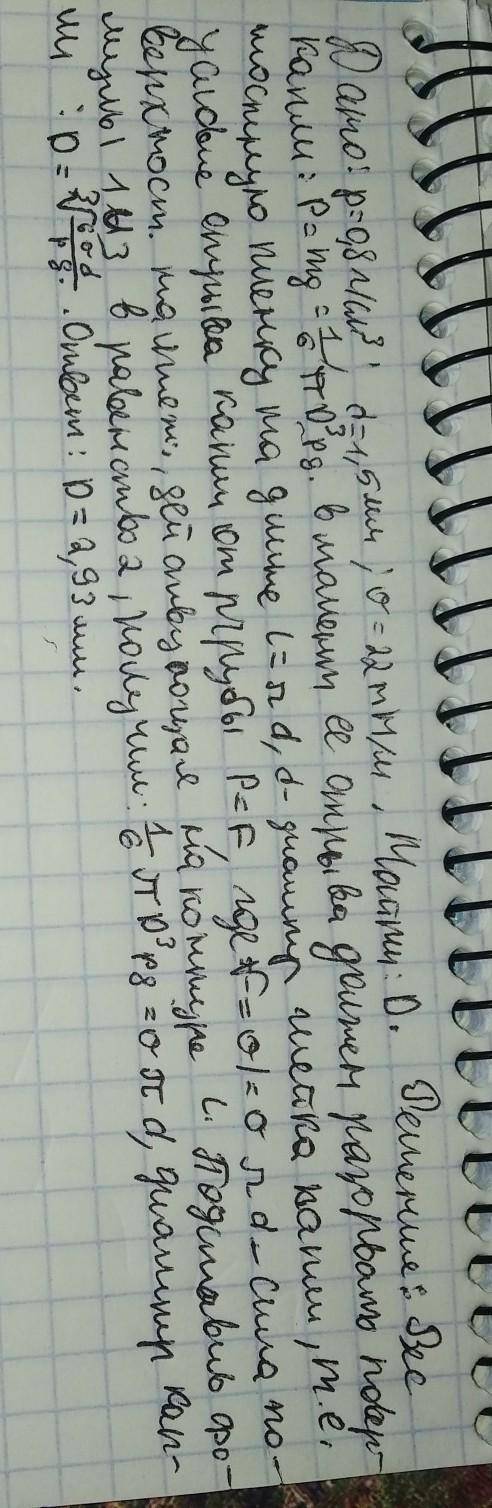 Дано: ρ=0,8 г/см³; d=1,5мм; σ=22мН/м, Найти: D. Решение: Вес
капли: P=mg=1/6 πD³ρg. в момент ее отрыва должен разорвать повер-
хностную пленку на длине l=πd, d-диаметр шейка капли, т.е.
условие отрыва капли от трубы P=F, где F=σl=σπd-сила по-
верхност. натяжен., действующая на контуре L. Подставив фо-
мулы 1 и 3 в равенство 2, получим: 1/6 πD³ρg=σπd, диаметр кап-
ли: D=∛6σd/ρg. Ответ: D=2,93мм.